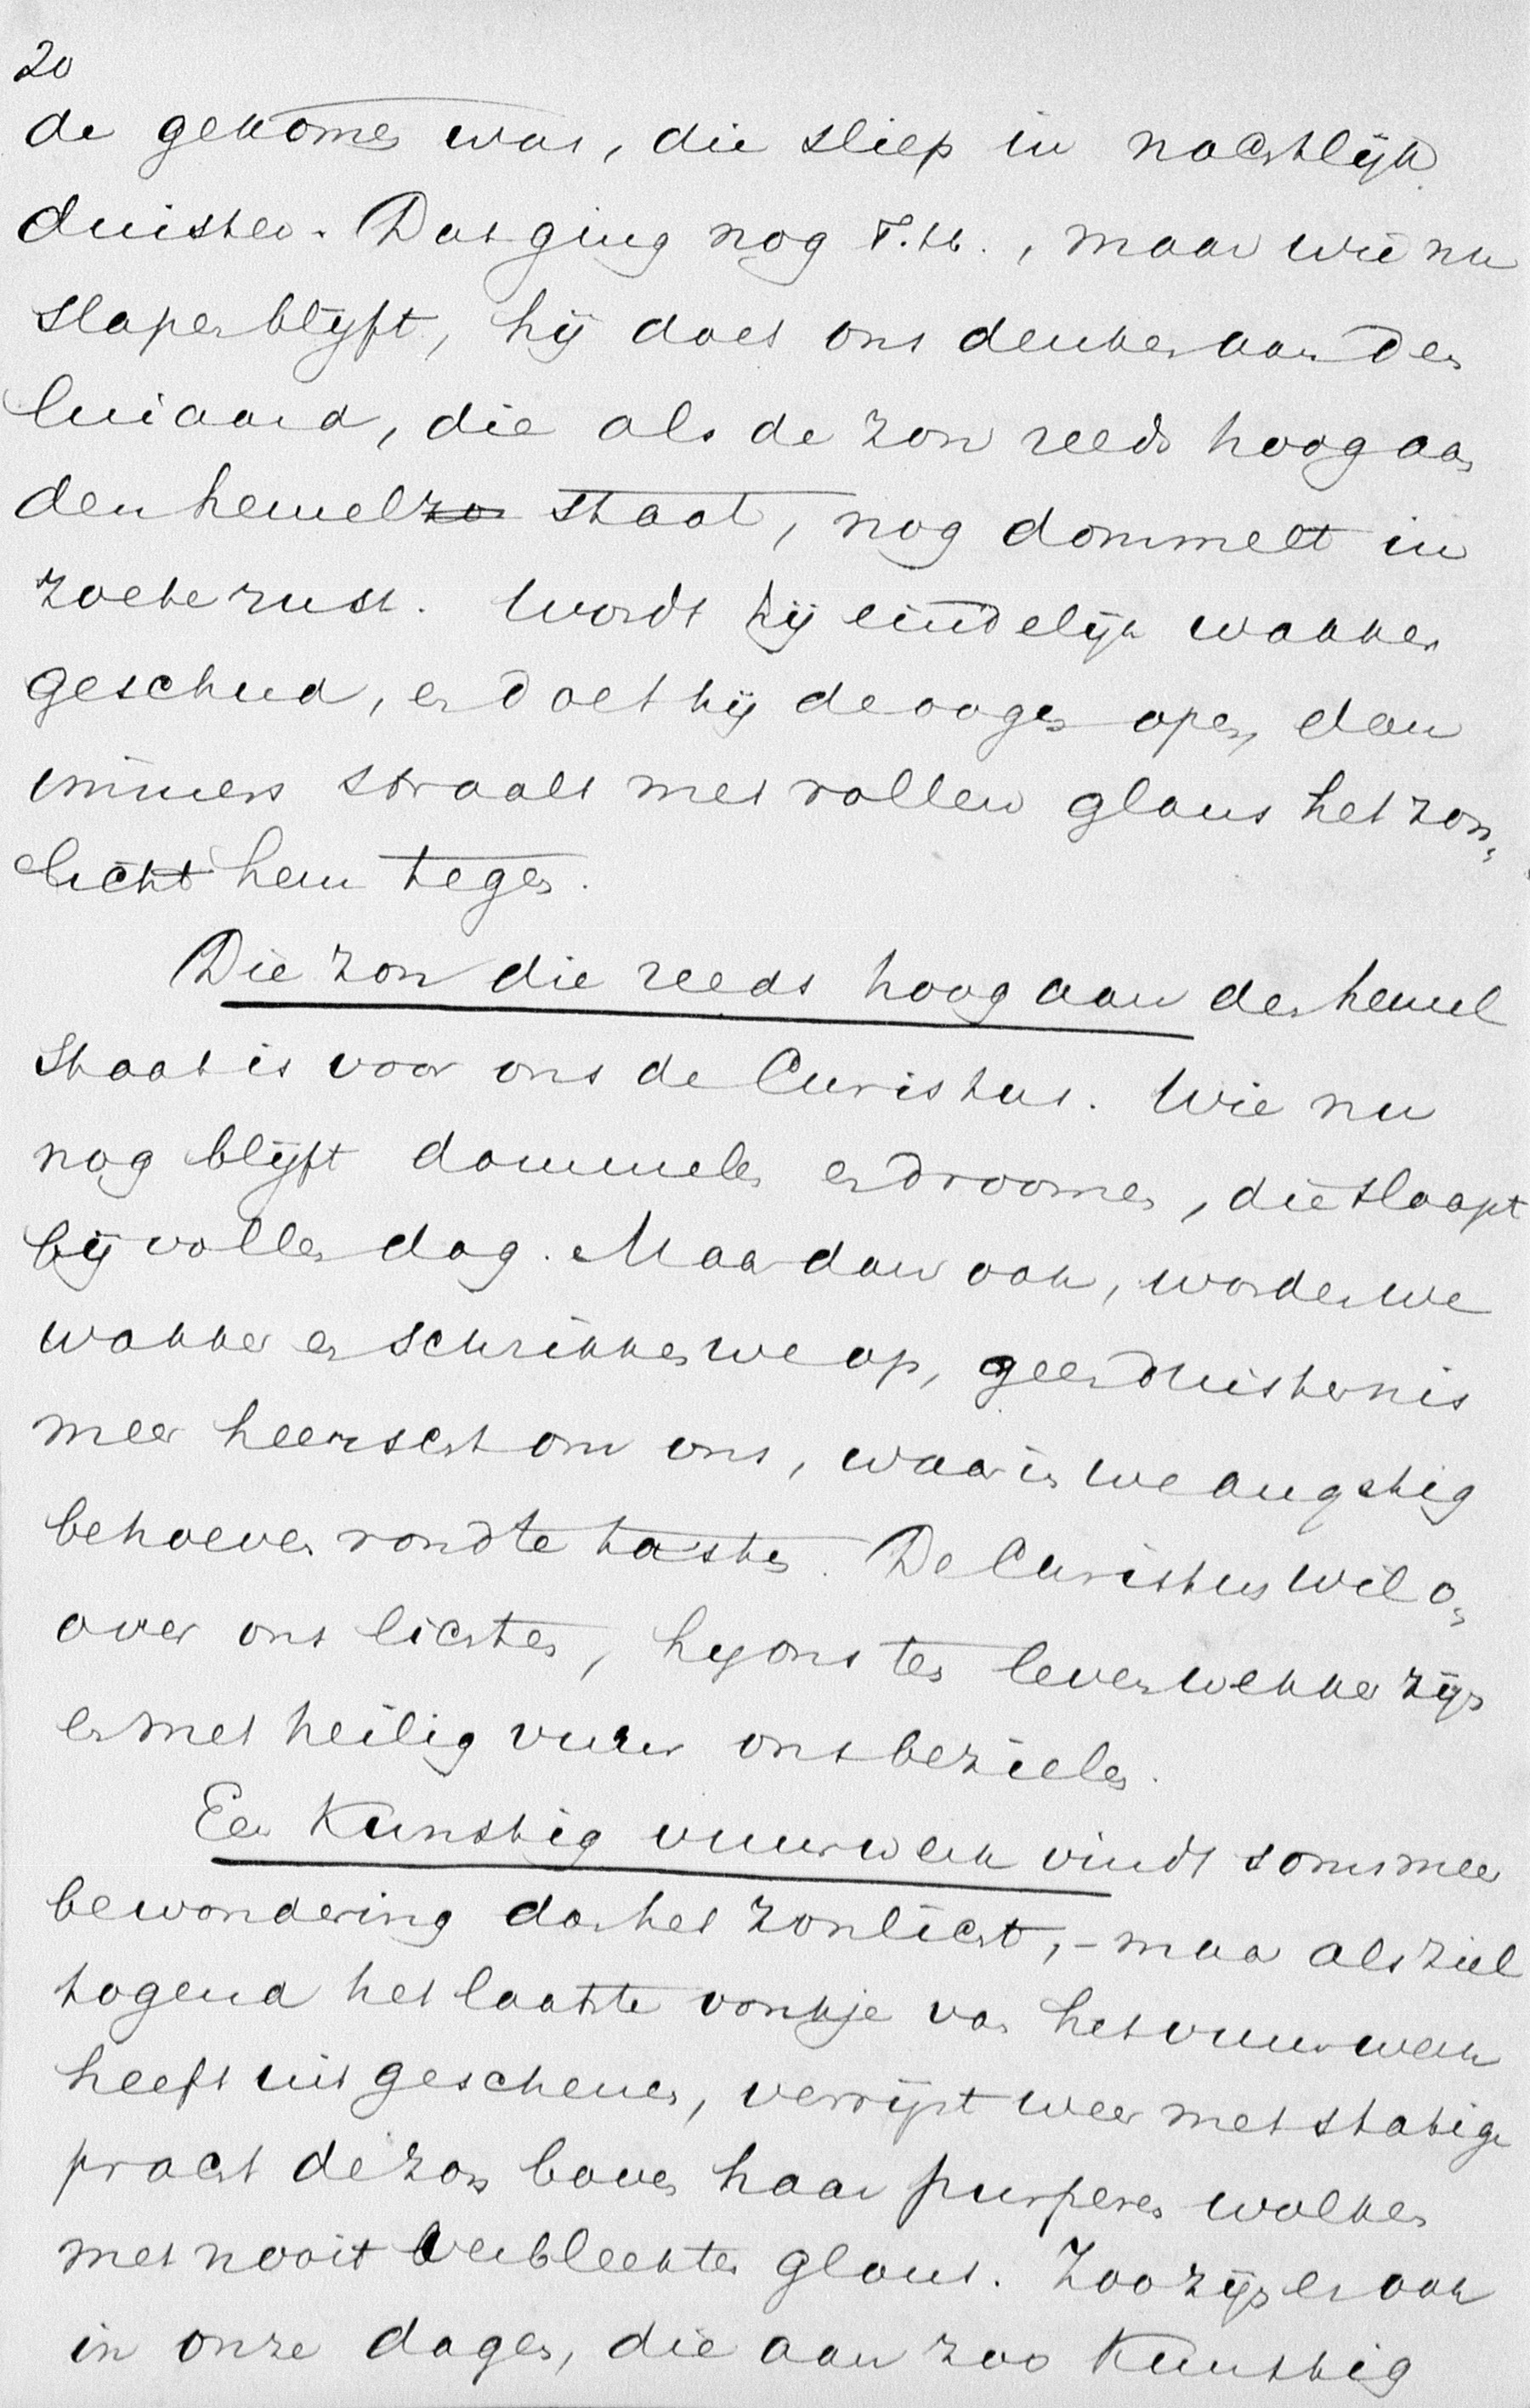 20
de gekomen was, die sliep in nachtlijk
duister. Dat ging nog T.H., maar wie nu
slapen blijft, hij doet ons denken aan den
luiaard, die als de zon reeds hoog aan
den hemel zo staat, nog dommelt in
zoete rust. Wordt hij eindelijk wakker
geschud, en doet hij de oogen open, dan
immers straalt met vollen glans het zon-
licht hem tegen.
Die zon die reeds hoog aan den hemel
staat is voor ons de Christus. Wie nu
nog blijft dommelen en droomen, die slaapt
bij vollen dag. Maar dan ook, worden we
wakker en schrikken we op, geen duisternis
meer heerscht om ons, waarin we angstig
behoeven rond te tasten. De Christus wil
over ons lichten, hij ons ten leven wekker zijn
en met heilig vuur ons bezielen.
Een Kunstig vuurwerk vindt soms meer
bewondering dan het zonlicht, - maar als ziel
togend het laatste vonkje van het vuurwerk
heeft uitgeschenen, verrijst weer met statige
pracht de zon boven haar purperen wolken
met nooit verbleekten glans. Zoo zijn er ook
in onze dagen, die aan zoo Kunstig